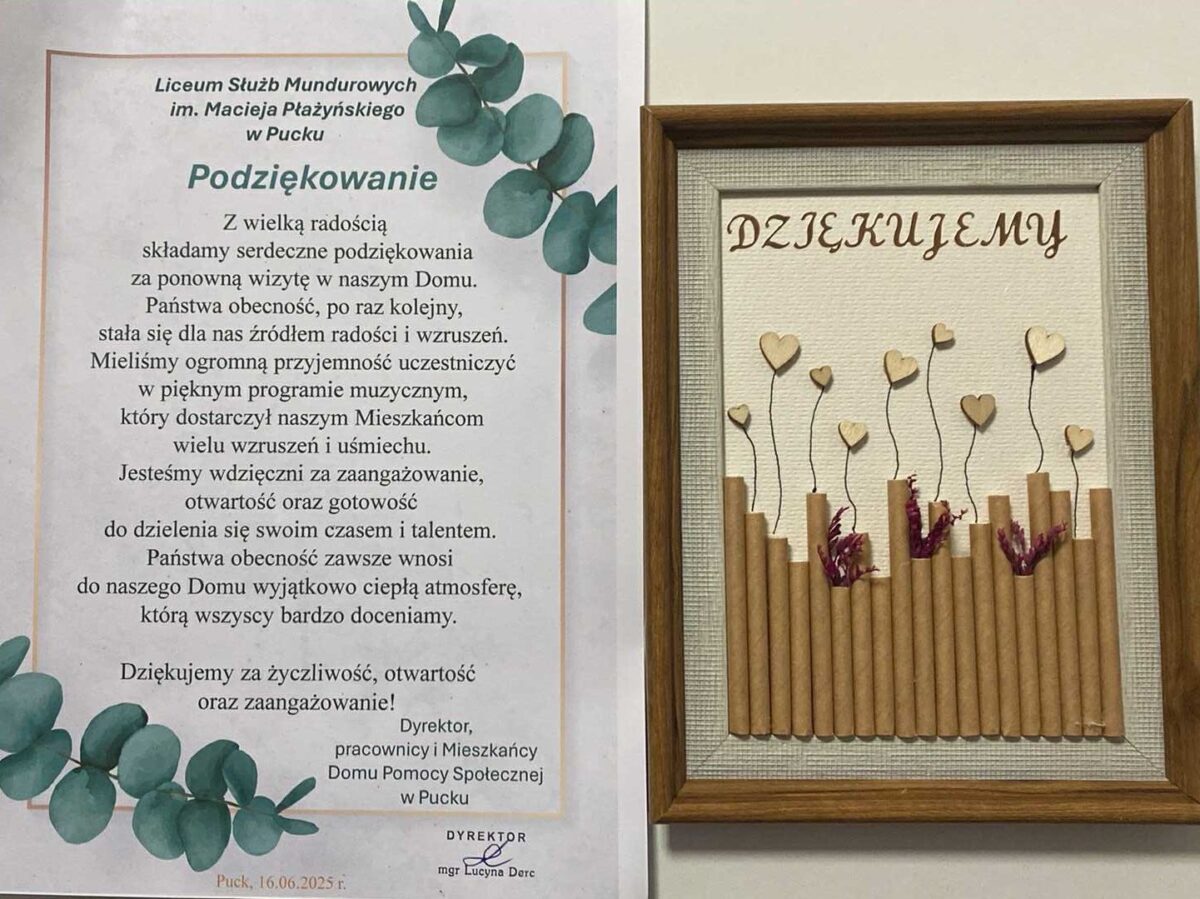 Liceum Służb Mundurowych
im. Macieja Płażyńskiego
w Pucku
Podziękowanie
Z wielką radością
składamy serdeczne podziękowania
za ponowną wizytę w naszym Domu.
Państwa obecność, po raz kolejny,
stała się dla nas źródłem radości i wzruszeń.
Mieliśmy ogromną przyjemność uczestniczyć
w pięknym programie muzycznym,
który dostarczył naszym Mieszkańcom
wielu wzruszeń i uśmiechu.
Jesteśmy wdzięczni za zaangażowanie,
otwartość oraz gotowość
do dzielenia się swoim czasem i talentem.
Państwa obecność zawsze wnosi
do naszego Domu wyjątkowo ciepłą atmosferę,
którą wszyscy bardzo doceniamy.
Dziękujemy za życzliwość, otwartość
oraz zaangażowanie!
Dyrektor,
pracownicy i Mieszkańcy
Domu Pomocy Społecznej
w Pucku
DYREKTOR
mgr Lucyna Derc
Puck, 16.06.2025 r.
DZIĘKUJEMY